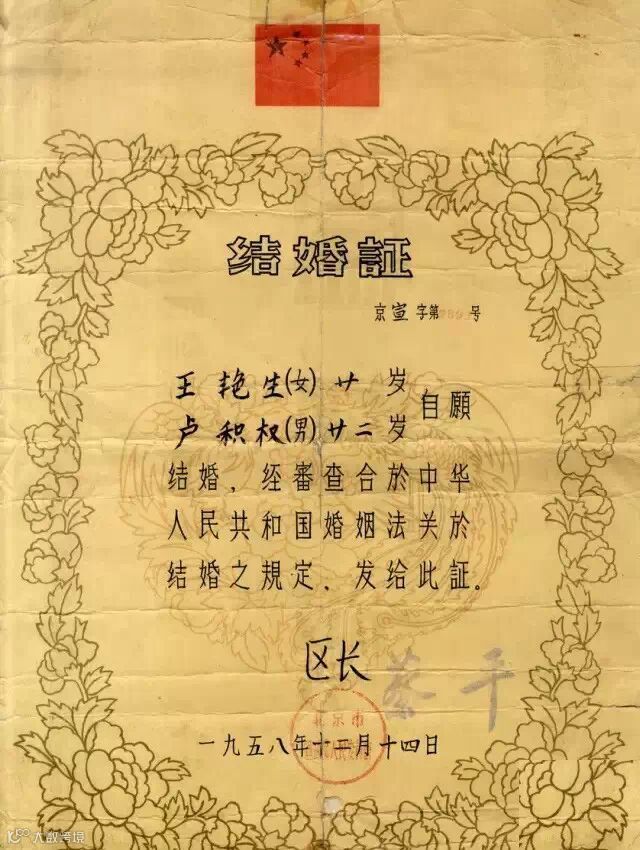 结婚証
京宣字第 号
王艳生(女)廿岁
卢积权(男)廿二岁
自願
结婚，经審查合於中华
人民共和国婚姻法关於
结婚之規定，发给此証。
区长
蔡平
北京市
一九五八年十二月十四日
大数跨境